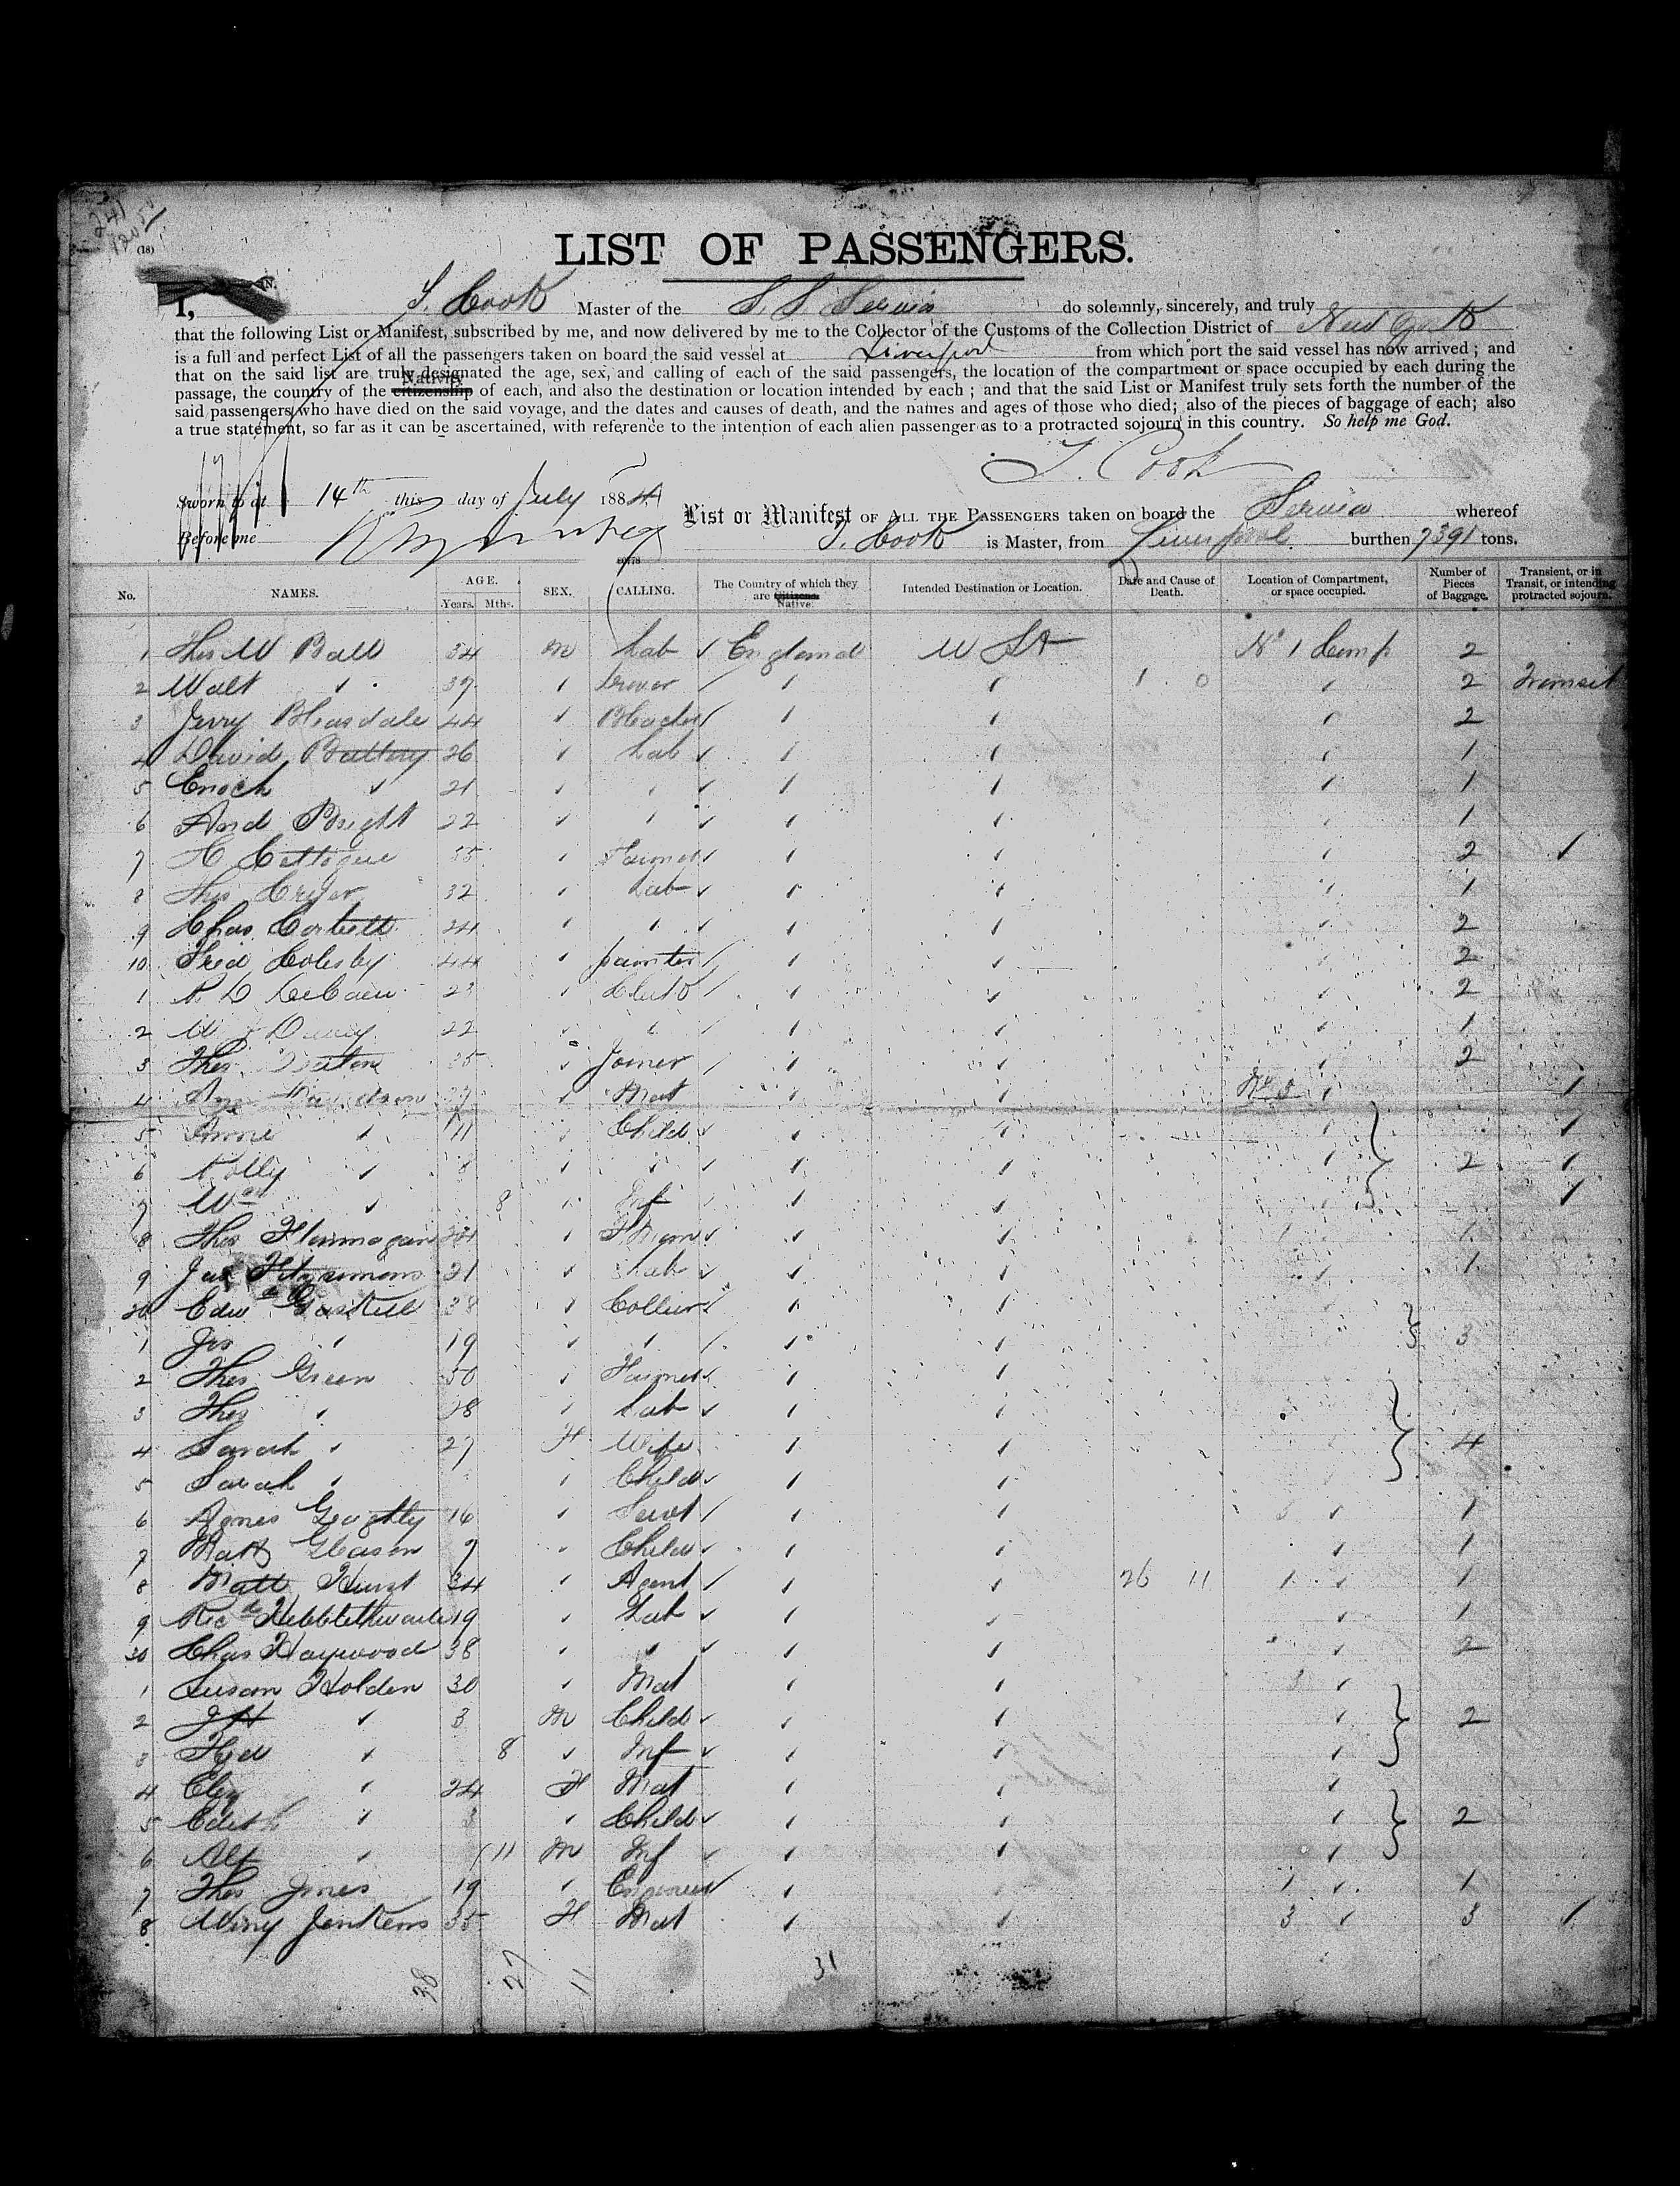 241
(18)
LIST OF PASSENGERS.
I, T. Cook Master of the S. S. Servia do solemnly, sincerely, and truly
that the following List or Manifest, subscribed by me, and now delivered by me to the Collector of the Customs of the Collection District of New York
is a full and perfect List of all the passengers taken on board the said vessel at Liverpool from which port the said vessel has now arrived; and
that on the said list are truly designated the age, sex, and calling of each of the said passengers, the location of the compartment or space occupied by each during the
Nativity
passage, the country of the citizenship of each, and also the destination or location intended by each; and that the said List or Manifest truly sets forth the number of the
said passengers who have died on the said voyage, and the dates and causes of death, and the names and ages of those who died; also of the pieces of baggage of each; also
a true statement, so far as it can be ascertained, with reference to the intention of each alien passenger as to a protracted sojourn in this country. So help me God.
T. Cook
Sworn to at 14th this day of July 1884
List or Manifest OF ALL THE PASSENGERS taken on board the Servia whereof
Before me
T. Cook is Master, from Liverpool burthen 7391 tons.
No. NAMES. AGE. Years. Mths. SEX. CALLING. The Country of which they are Citizens. Native. Intended Destination or Location. Date and Cause of Death. Location of Compartment, or space occupied. Number of Pieces of Baggage. Transient, or in Transit, or intending protracted sojourn.
1 Thos W Ball 34 m Lab England U St No 1 Comp 2
2 Walt " 37 " " 1 0 2 Transit
3 Jerry Bleasdale 44 " " 2
4 David Battery 26 " Lab " 1
5 Enoch " 21 " " " 1
6 And Bright 22 " " " 1
7 H 55 " Farmer " 2
8 Thos 32 " Lab " 1
9 Chas Corbett 24 " " " 2
10 Fred Colesby 44 " painter " 2
1 23 " Clerk " 2
2 W 22 " " " 1
3 Thos 35 " Joiner " 2
4 Davidson 37 " Mat " No 3
5 Anne " 11 " Child "
6 Polly " 8 " " " 2
7 Wm " 8 " Inf "
8 Thos Flannagan " " 1
9 Jas Fitzsimons 21 " Lab " 1
20 Edw Gaskell 38 " Collier "
1 Jos " 19 " " " 3
2 Thos Green 50 " Farmer "
3 Thos " 28 " Lab "
4 Sarah " 27 F Wife " 4
5 Sarah " " Child "
6 Agnes 16 " Servt " 3 1
7 Gleason 7 " Child " 1
8 Matt Hurst 34 " Agent " 26 11 1 1
9 Ricd Hebblethwaite 19 " Lab " 1
30 Chas Haywood 38 " " " 2
1 Susan Holden 30 " Mat " 3
2 " 3 m Child " 2
3 Fred " 8 " Inf "
4 Eliz " 24 F Mat "
5 Edith " 3 " Child " 2
6 Alf " 11 m Inf "
7 Thos Jones 19 " Engineer " 1 1
8 Winy Jenkens 35 F Mat " 3 3
38 27 11 31